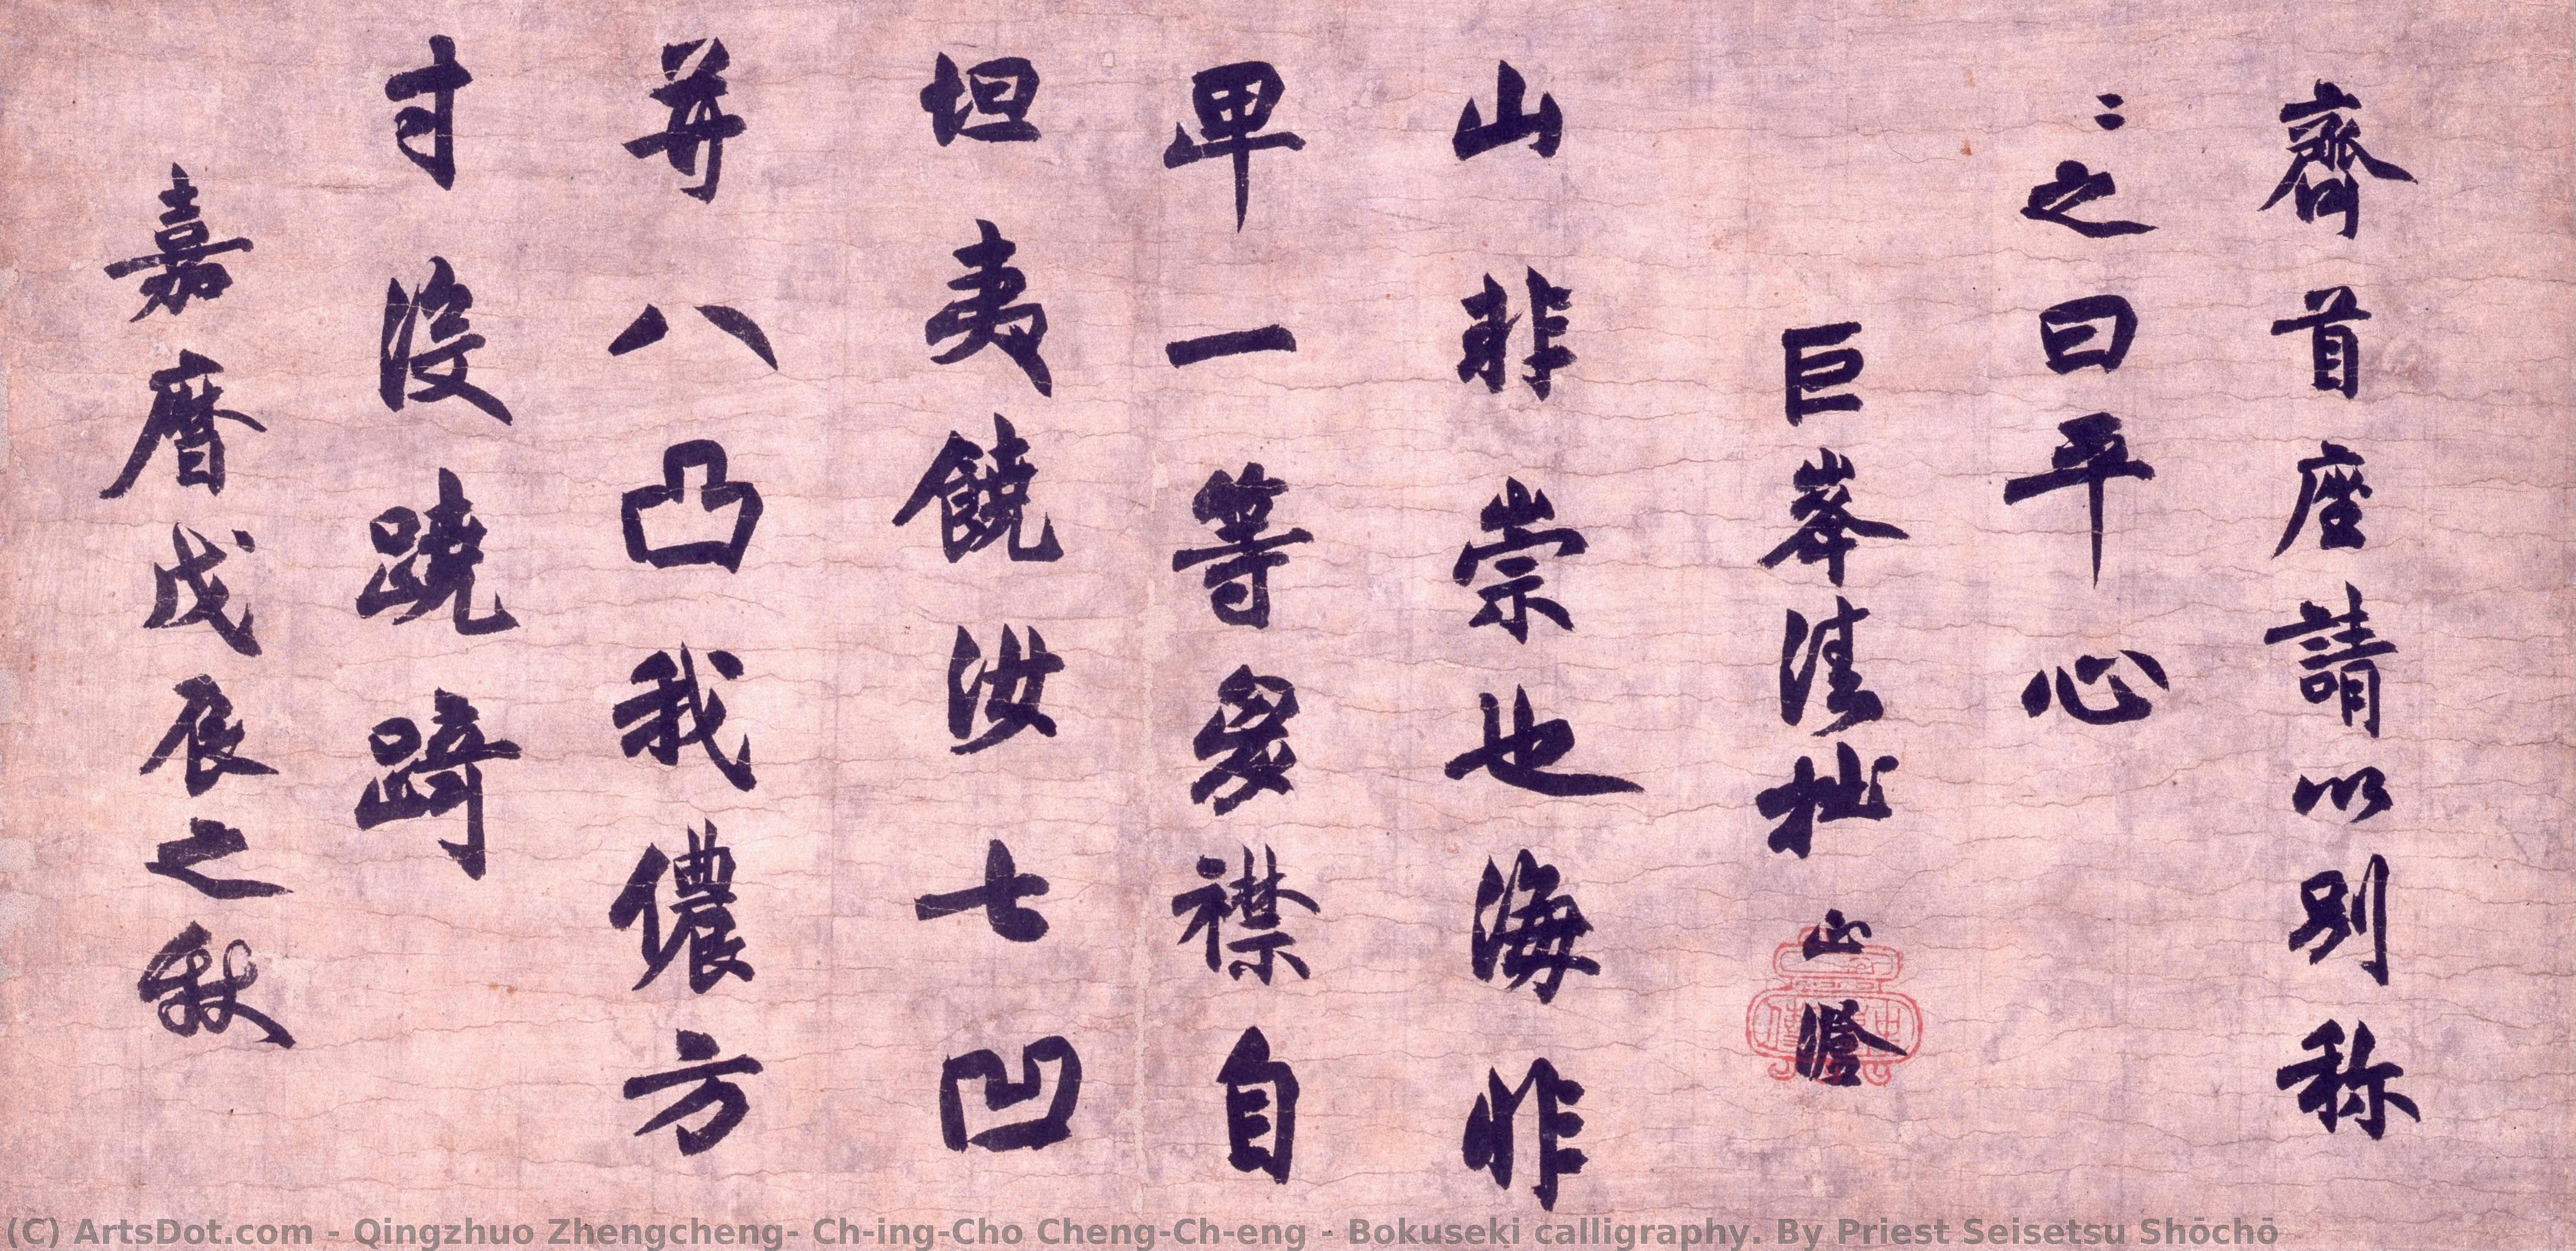 齊首座請以別称
〻之曰平心
巨峯清拙 正澄
山非崇也海非
卑一等胷襟自
坦夷饒汝七凹
并八凸我儂方
寸没蹺踦
嘉暦戊辰之秋
(C) ArtsDot.com - Qingzhuo Zhengcheng- Ch-ing-Cho Cheng-Ch-eng - Bokuseki calligraphy. By Priest Seisetsu Shōchō